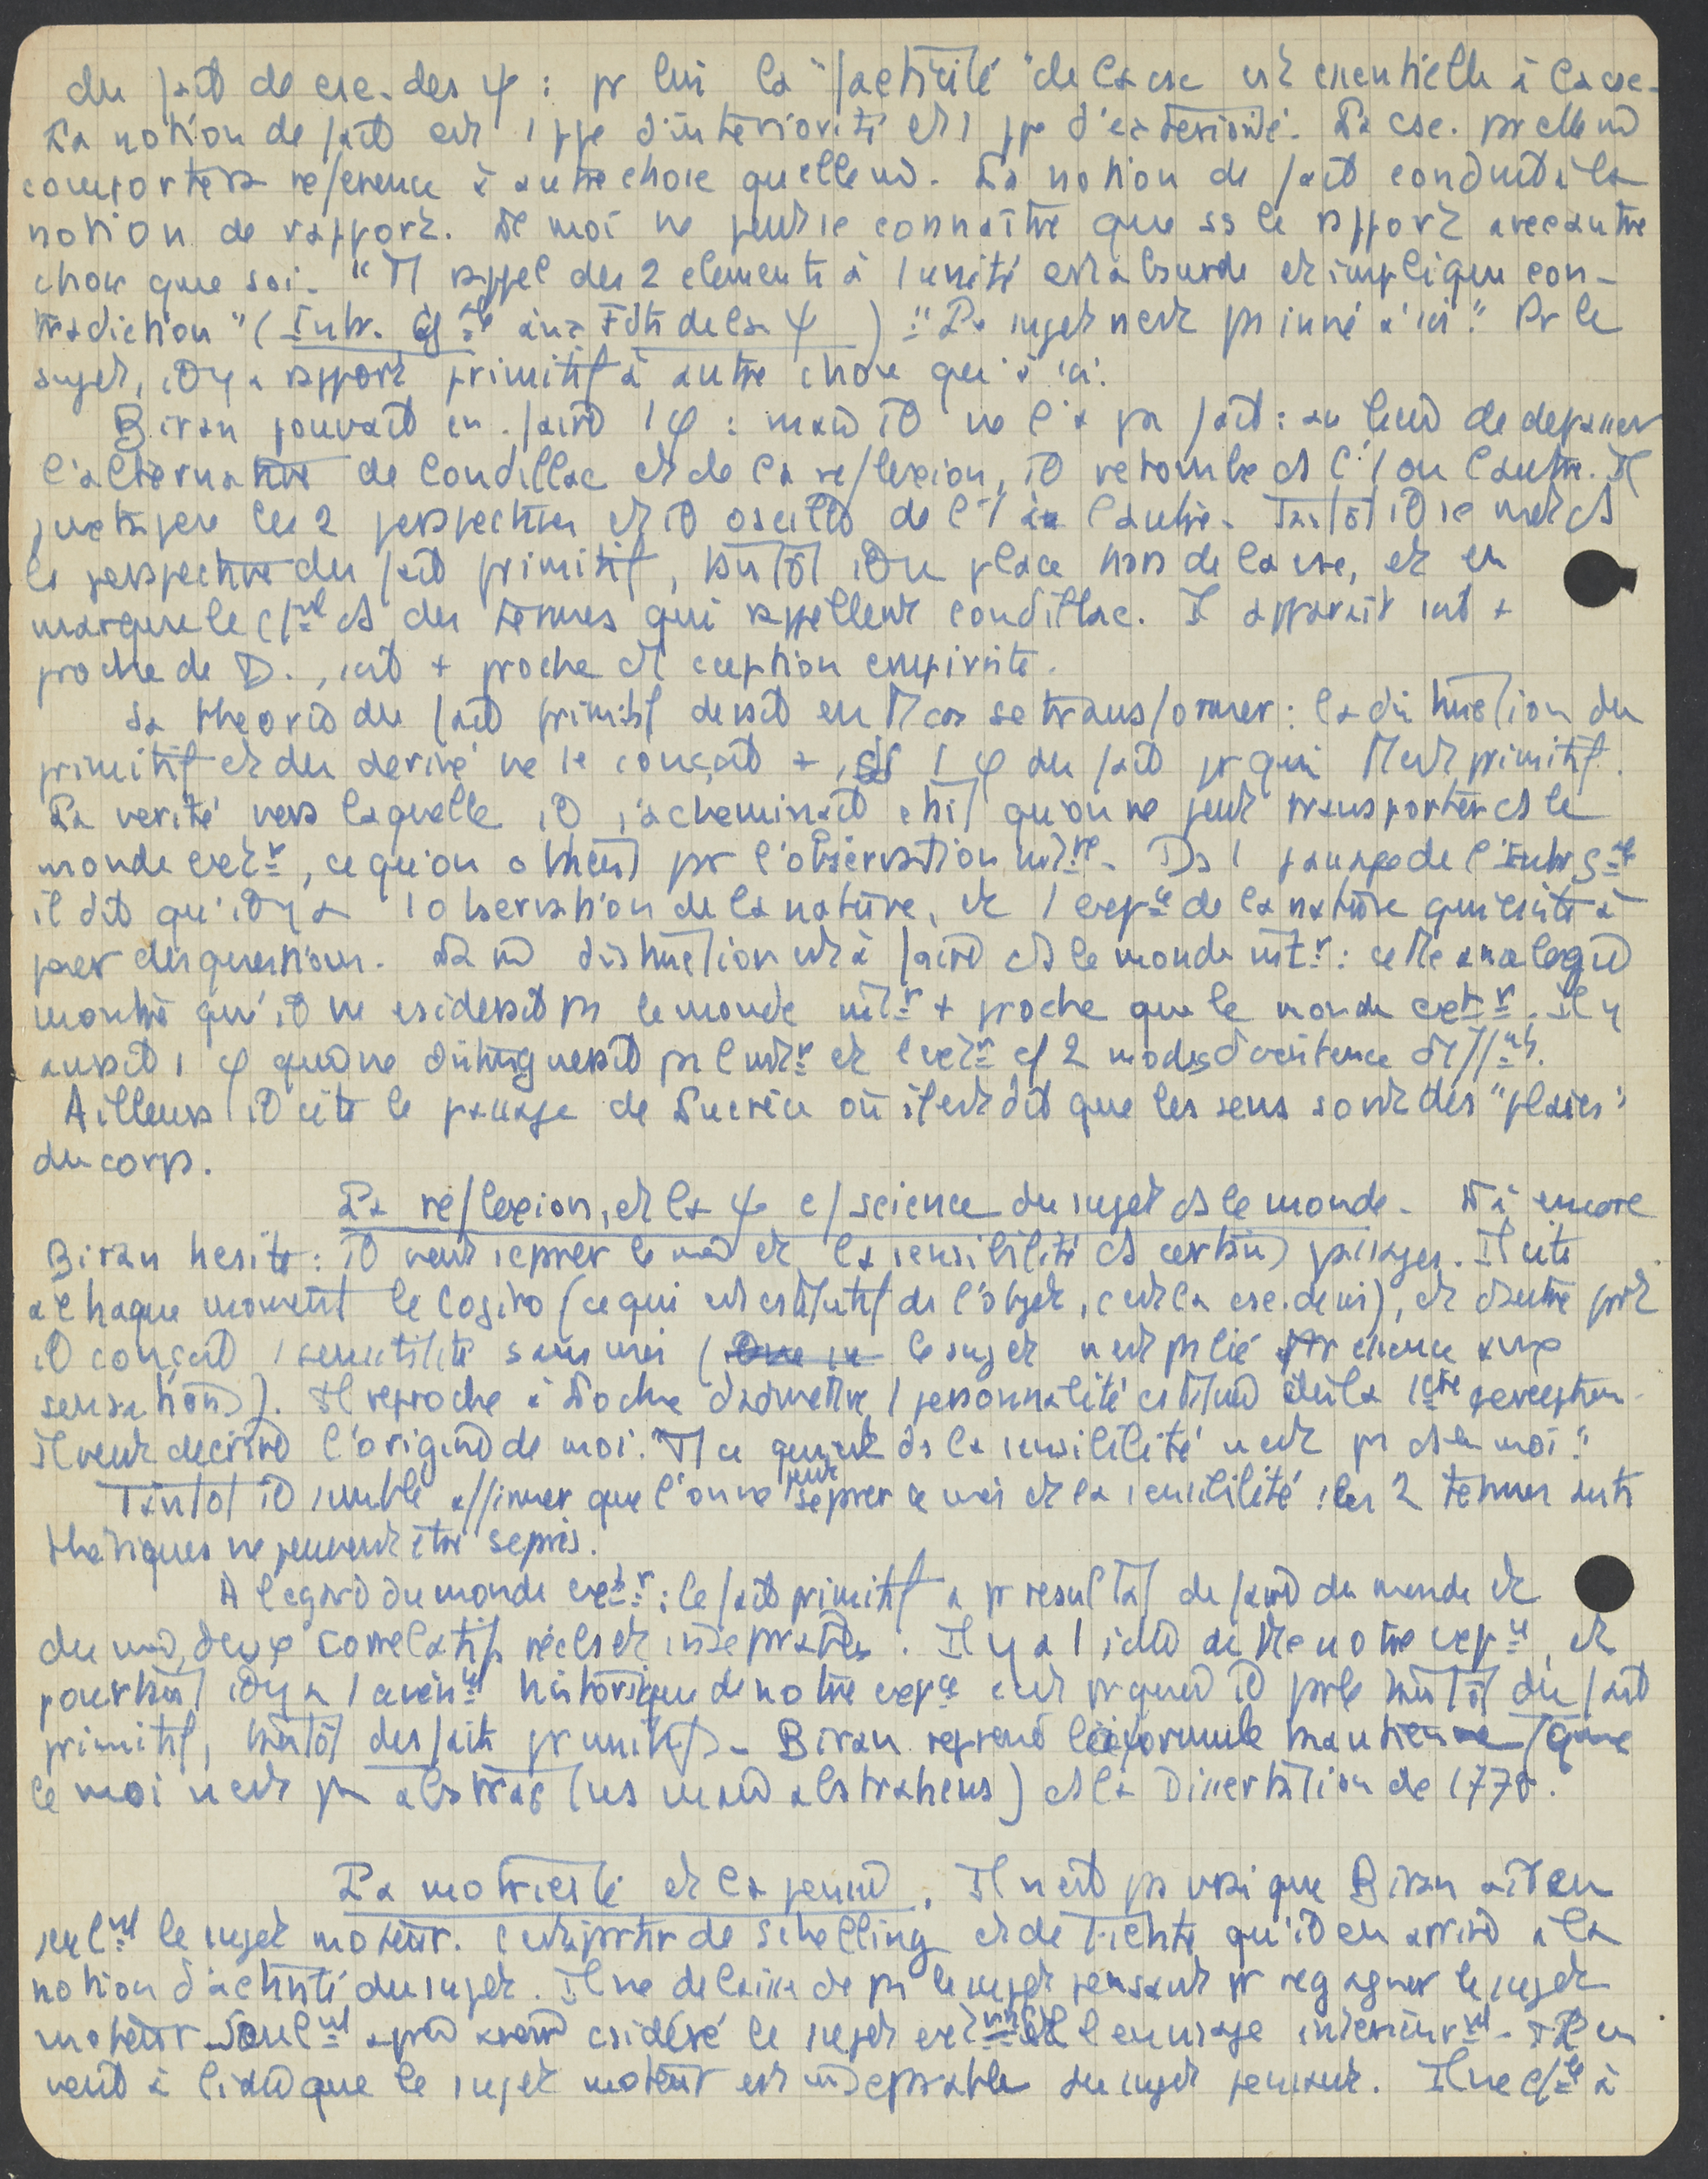 du fait de csc. des ψ : pr lui la "facticité" de la csc est essentielle à la csc.
La notion de fait est 1 ppe d'intériorité et 1 ppe d'extériorité. La csc. par elle mê
comporte référence à autre chose qu'elle mê. La notion de fait conduit à la
notion de rapport. Le moi ne peut se connaître que ss le rapport avec autre
chose que soi. " Tt rappel des 2 elements à l'unité est absurde et implique con-
tradiction" (Intr. gle aux Fdts de la ψ ) : "Le sujet n'est pas inné à soi". Pr le
sujet, il y a rapport primitif à autre chose qu'à soi.
Biran pouvait en faire 1 φ : mais il ne l'a pas fait : au lieu de dépasser
l'alternative de Condillac et de la réflexion, il retombe ds l'1 ou l'autre. Il
juxtapose les 2 perspectives et il oscille de l'1 à l'autre. Tantôt il se met ds
la perspective du fait primitif, tantôt il se place hors de la csc, et en
marque le cfmt ds des termes qui rappellent Condillac. Il apparaît soit +
proche de D., soit + proche de ception empiriste.
Sa théorie du fait primitif devait en tt cas se transformer : la distinction du
primitif et du derivé ne se conçoit +, ds 1 φ du fait pr qui tt est primitif.
La verité vers laquelle il s'acheminait était qu'on ne peut transporter ds le
monde extr, ce qu'on obtient pr l'observation intre. Ds 1 passage de l'Intr gle
il dit qu'il y a 1 observation de la nature, et 1 expce de la nature qui csiste à
poser des questions. La mê distinction est à faire ds le monde intr : cette analogie
montre qu'il ne csiderait pas le monde intr + proche que le monde extr. Il y
aurait 1 φ qui ne distinguerait pas l'intr et l'extr cf 2 modes d'existence difffts.
Ailleurs il cite le passage de Lucrèce où il est dit que les sens sont des "plaies"
du corps.
La réflexion, et la ψ cf science du sujet ds le monde. Là encore
Biran hesite : il veut séparer le moi et la sensibilité ds certains passages. Il cite
à chaque moment le Cogito (ce qui est cstitutif de l'objet, c'est la csc. de soi), et d'autre part
il conçoit 1 sensibilité sans moi ( le sujet n'est pas lié par essence aux
sensations). Il reproche à Locke d'admettre 1 personnalité cstituée dès la 1ère perception.
Il veut décrire l'origine de moi. "Tt ce qui est ds la sensibilité n'est pas ds le moi".
Tantôt il semble affirmer que l'on ne peut séparer le moi et la sensibilité : les 2 termes anti
thétiques ne peuvent être séparés.
A l'egard du monde extr : le fait primitif a pr résultat de faire du monde et
du moi, deux correlatifs réels et inséparables. Il y a 1 idée de tte notre expce, et
pourtant il y a 1 avènmt historique de notre expce c'est pr quoi il parle tantôt du fait
primitif, tantôt des faits primitifs. Biran reprend la formule kantienne (que
le moi n'est pas abstrait (us mais abstrahens) ds la Dissertation de 1770.
La motricité et la pensée. Il n'est pas vrai que Biran ait eu
seulmt le sujet moteur. C'est à partir de Schelling et de Fichte qu'il en arrive à la
notion d'activité du sujet. Il ne délaisse pas le sujet pensant pr regagner le sujet
moteur seulmt après avoir csidéré le sujet extmt il l'envisage intérieurmt. Il en
vient à l'idée que le sujet moteur est inséparable du sujet pensant. Il ne